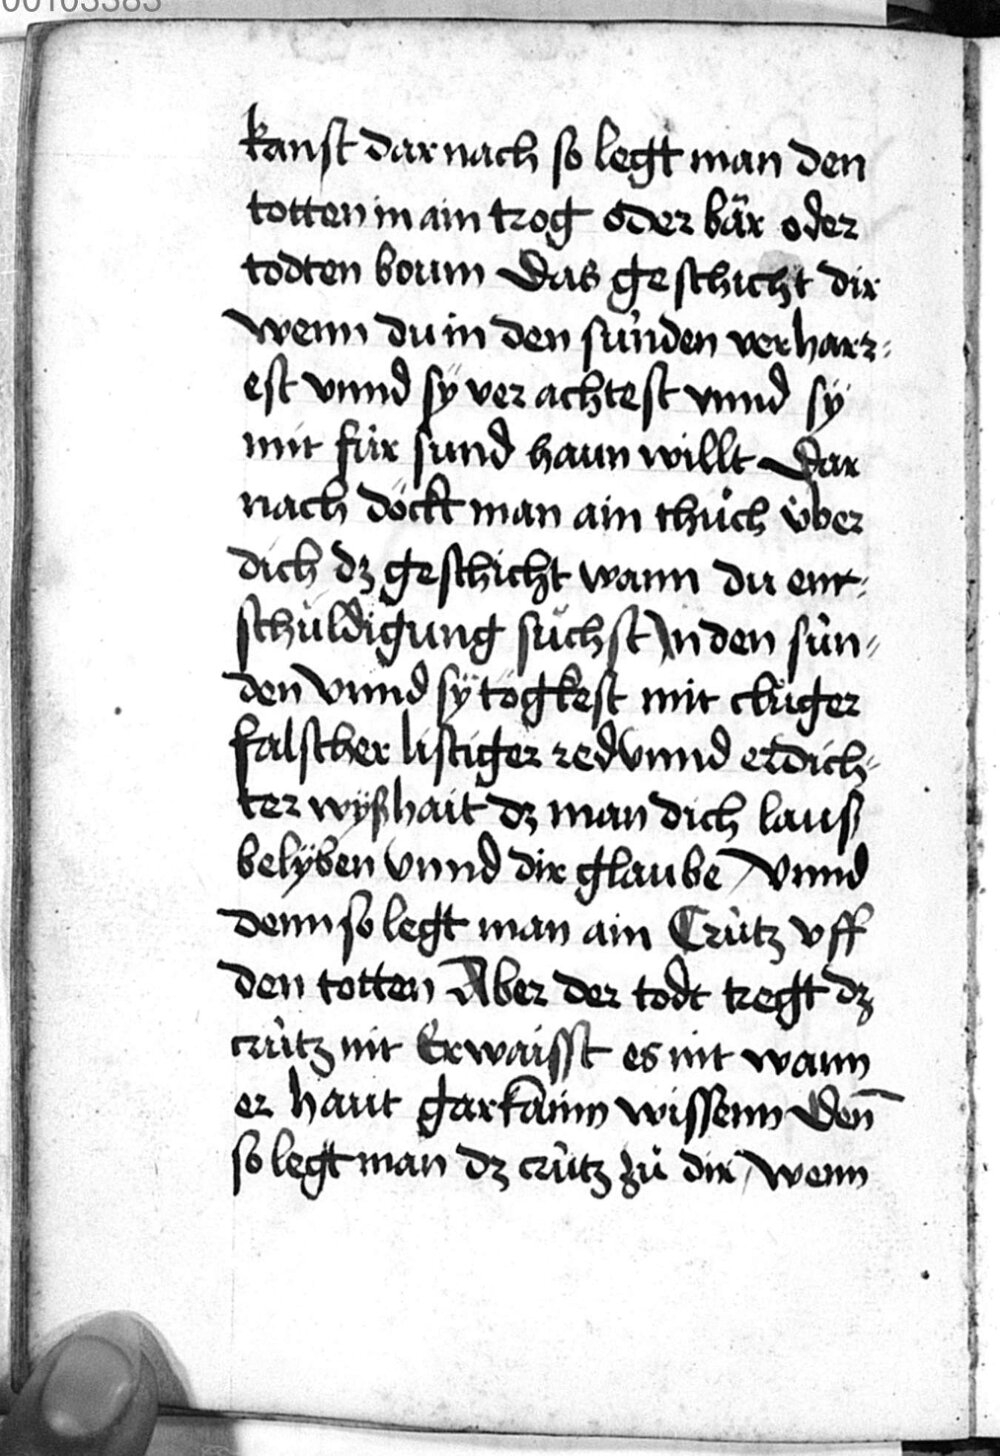 00103383
kanst dar nach so legt man den
totten in ain trog oder bär oder
todten boum Das geschicht dir
wenn du in den sünden verharr⸗
est vnnd sÿ ver achtest vnnd sÿ
nit für sund haun willt Dar
nach döckt man ain thuͦch v̈ber
dich dz geschicht wann du ent⸗
schuldigung suͦchst In den sün⸗
den vnnd sÿ tögkest mit cluͦger
falscher listiger red vnnd erdich⸗
ter wÿßhait dz man dich lauß
belÿben vnnd dir glaube Vnnd
denn so legt man ain Crütz vff
den totten Aber der todt tregt dz
crütz nit Er waisst es nit wann
er haut gar kainn wissenn Deñ
so legt man dz crütz zuͦ dir / wenn